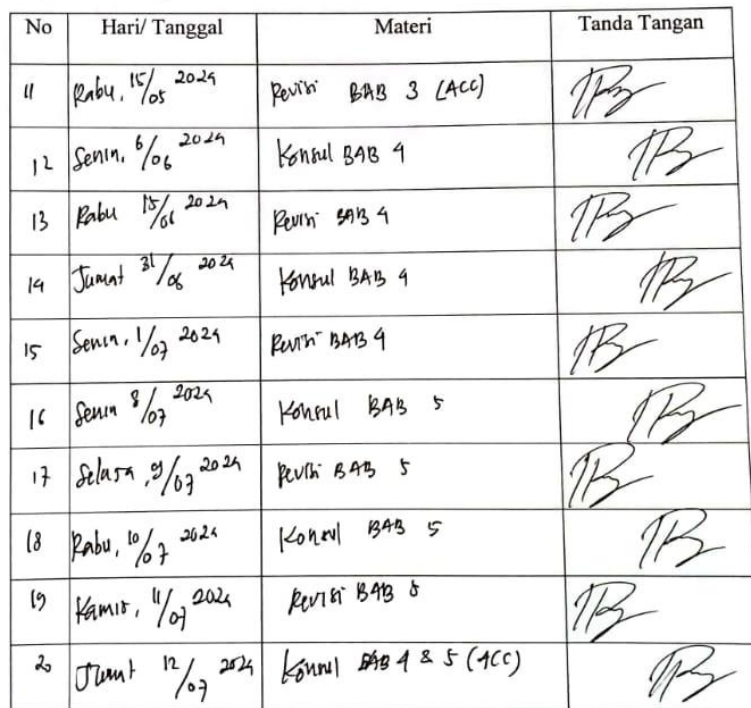 No Hari/ Tanggal Materi Tanda Tangan
11 Rabu, 15/05 2024 Revisi BAB 3 (ACC)
12 Senin, 6/06 2024 Konsul BAB 4
13 Rabu 15/06 2024 Revisi BAB 4
14 Jumat 31/06 2024 Konsul BAB 4
15 Senin, 1/07 2024 Revisi BAB 4
16 Senin 8/07 2024 Konsul BAB 5
17 Selasa, 9/07 2024 Revisi BAB 5
18 Rabu, 10/07 2024 Konsul BAB 5
19 Kamis, 11/07 2024 Revisi BAB 5
20 Jumat 12/07 2024 Konsul BAB 4 & 5 (ACC)